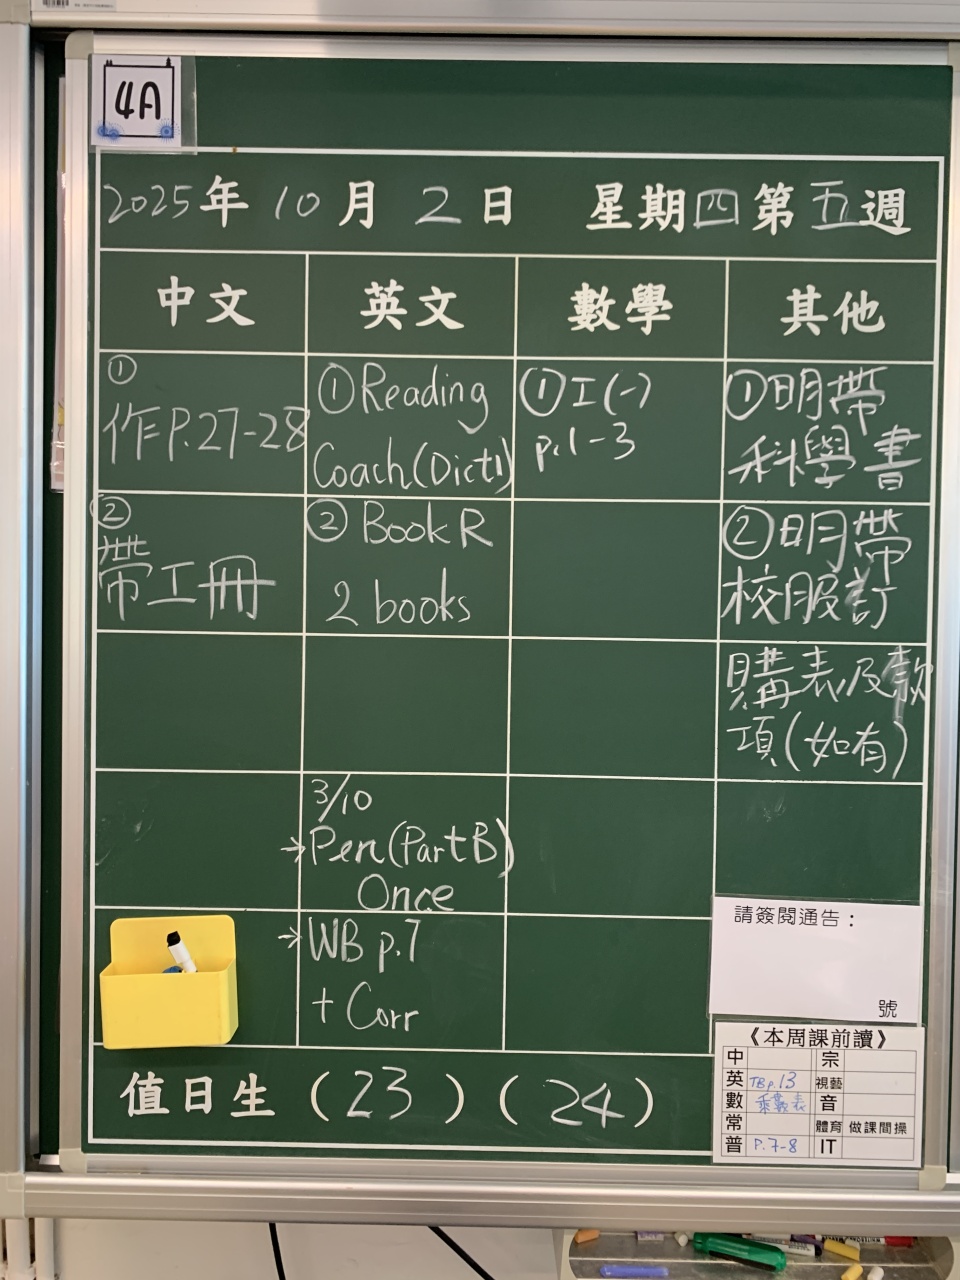 4A
2025年 10月 2日 星期四第五週
中文 英文 數學 其他
①
作P.27-28
②
帶工冊
①Reading
Coach(Dict1)
② Book R
2 books
3/10
→Pen(Part B)
Once
→WB p.7
+ Corr
①工(一)
p.1-3
①明帶
科學書
②明帶
校服訂
購表及款
項(如有)
請簽閱通告：
號
《本周課前讀》
中 宗
英 TBp.13 視藝
數 乘數表 音
常 體育 做課間操
普 P.7-8 IT
值日生 (23) (24)